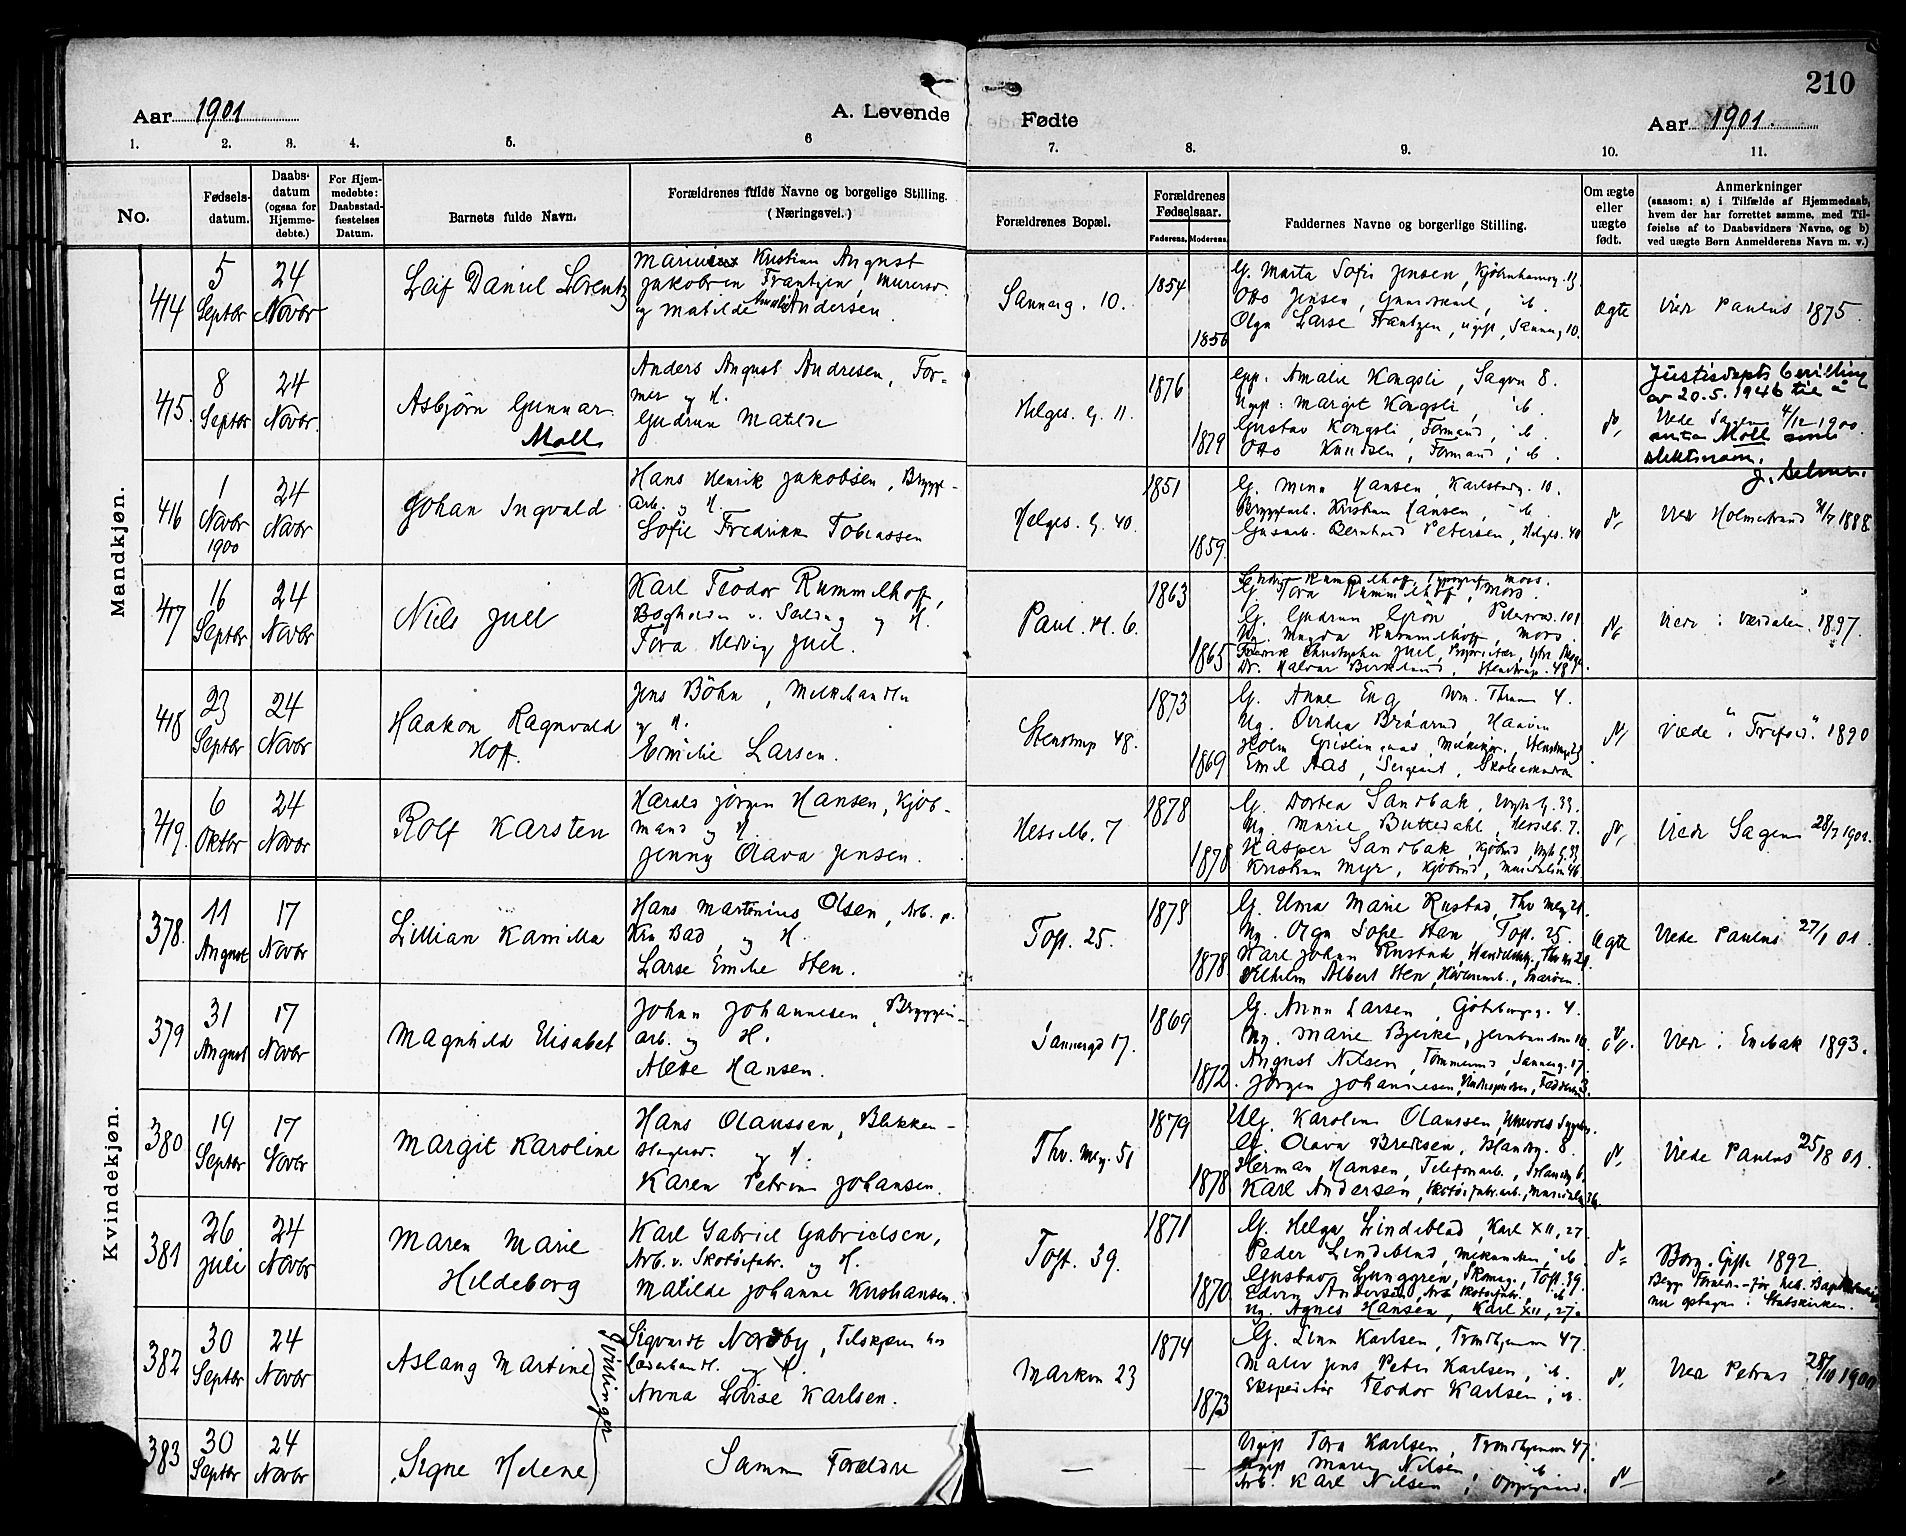 210
Aar 1901
A. Levende
Fødte
Aar 1901.
1. 2. 3. 4. 5. 6 7. 8. 9. 10. 11.
No.
Fødsels-
datum.
Daabs-
datum
(ogsaa for
Hjemme-
døbte.)
For Hjem-
medøbte:
Daabsstad-
fæstelses
Datum.
Barnets fulde Navn.
Forældrenes fulde Navne og borgelige Stilling.
(Næringsvei.)
Forældrenes Bopæl.
Forældrenes
Fødselsaar.
Faderens. Moderens.
Faddernes Navne og borgelige Stilling.
Om ægte
eller
uægte
født.
Anmerkninger
(saasom: a) i Tilfælde af Hjemmedaab,
hvem der har forrettet samme, med Til-
føielse af to Daabsvidners Navne, og b)
ved uægte Børn Anmelderens Navn m. v.)
Mandkjøn.
414
5
Septbr
24
Novbr
Leif Daniel Lorentz
Kristian August
Jakobsen Frantzen, Murersv.
og Matilde Amalie Andersen.
Sannerg. 10.
1854
1856
G. Marta Sofie Jensen,
Otto Jensen,
Olga Larse Frantzen, ugift, Sannerg 10.
Ægte
Viede Paulus 1875.
415.
8
Septbr
24
Novbr.
Asbjørn Gunnar
Moll
Anders August Andresen, For-
mer og H.
Gudrun Matilde
Helges. G. 11.
1876
1879
Amalie Kongsli, Sagvn 8.
Ugift: Margit Kongsli, ib.
Gustav Kongsli, Formand, ib.
Otto Knudsen, Formand, ib.
Justisdepts bevilling
av 20.5.1946 til å
Viede Sagen 4/12 1900.
anta Moll som
slektsnavn.
416
1
Novbr
1900
24
Novbr
Johan Ingvald
Hans Henrik Jakobsen, Brygge-
arb. og H.
Sofie Fredrikke Tobiassen
Helges. G. 40.
1851
1859.
G. Minn Hansen, Karlstadg. 10.
Bryggearb. Kristian Hansen, ib.
Bernhard Petersen, Helges. 40
Viede Holmestrand 1888.
417
16
Septbr
24
Novbr
Niels Juell
Karl Teodor Rummelhoff,
Bogholder og H.
Tora Hedvig Juell.
Paul. Pl. 6.
1863
1865
G. Tora Rummelhoff, Moss.
G. Gudrun Grøn
Ug. Magda Rummelhoff, Moss.
Fredrik Christopher Juell,
Dr. Halvar Berklund, Stenstrup. 48
Viede i Værdalen 1897.
418
23
Septbr
24
Novbr
Haakon Ragnvald
Hoff.
Jens Böhn, Melkehandler
og H.
Emilie Larsen.
Stenstrup 48.
1873
1869
G. Anne Eng
Emil Aas, Sergeant,
Viede "Trefold." 1890
419.
6
Oktbr
24
Novbr
Rolf Karsten
Harald Jørgen Hansen, Kjøb-
mand og H.
Jenny Olava Jensen.
Hesselb. 7
1878
1878
G. Dortea Sandbak,
Ug. Marie Buttedahl, Hesselb. 7.
Kasper Sandbak, Kjøbmd,
Kristian Myr, Kjøbmd,
Viede Sagen 28/7 1901.
Kvindekjøn.
378.
11
August
17
Novbr
Lillian Kamilla
Hans Martinius Olsen, Arb. p.
Krn Bad, og H.
Larse Emilie Sten.
Toft. 25.
1878
G. Unna Marie Rustad, Thv Mey 21.
Ug. Olga Sofie Sten, Toft. 25.
Karl Johan Rustad,
Vilhelm Albert Sten,
Ægte
Viede Paulus 27/1 01.
379
31
August
17
Novbr
Magnhild Elisabet
Johan Johannesen, Bryggeri-
arb. og H.
Alette Hansen.
Sannergd 17.
1869
1872
G. Anna Larsen, Gøteborgg. 4.
Ug. Marie Bjerke,
August Nilsen, Tømmermd, Sannerg. 17.
Jørgen Johannesen,
Viede i Enebak 1893.
380
19
Septbr
17
Novbr
Margit Karoline
Hans Olaussen, Blikken-
slagersv. og H.
Karen Petrine Johansen.
Thv. Mey. 51
1879
1878
Ug. Karoline Olaussen
G. Olava Bredesen,
Herman Hansen, Telefonarb.,
Karl Andersen, Skotøifabr.arb.,
Viede Paulus 25/8 01.
381
26
Juli
24
Novbr
Maren Marie
Hildeborg
Karl Gabriel Gabrielsen,
Arb. v. Skotøifabr. og H.
Matilde Johanne Kristiansen.
Toft. 39.
1871
1870
G. Helga Lindeblad, Karl XII, 27
Peder Lindeblad, Mekaniker, ib.
Gustav Ljunggren, Skomag., Toft. 39.
Edvin Andersen, Arb. Skotøifabr. ib
Ug. Agnes Hansen, Karl XII, 27
Borg. Gifte 1892.
nu optagne i Statskirken.
382
30
Septbr
24
Novbr
Aslaug Martine
Tvillinger
Sigvardt Nordby, Tilskjærer hos
Læderhandl. og H.
Anna Lovise Karlsen.
Markvn 23
1874
1873
G. Lina Karlsen, Trondhjemsvn 47.
Maler Jens Peter Karlsen, ib.
Ekspeditør Teodor Karlsen, ib.
Viede Petrus 28/10 1900
383
30
Septbr
24
Novbr
Signe Helene
Samme Forældre
—
—
Ugift Tora Karlsen, Trondhjemsvn 47.
Ugift Nilsen, ib.
Arb. Karl Nilsen, Oppegaard.